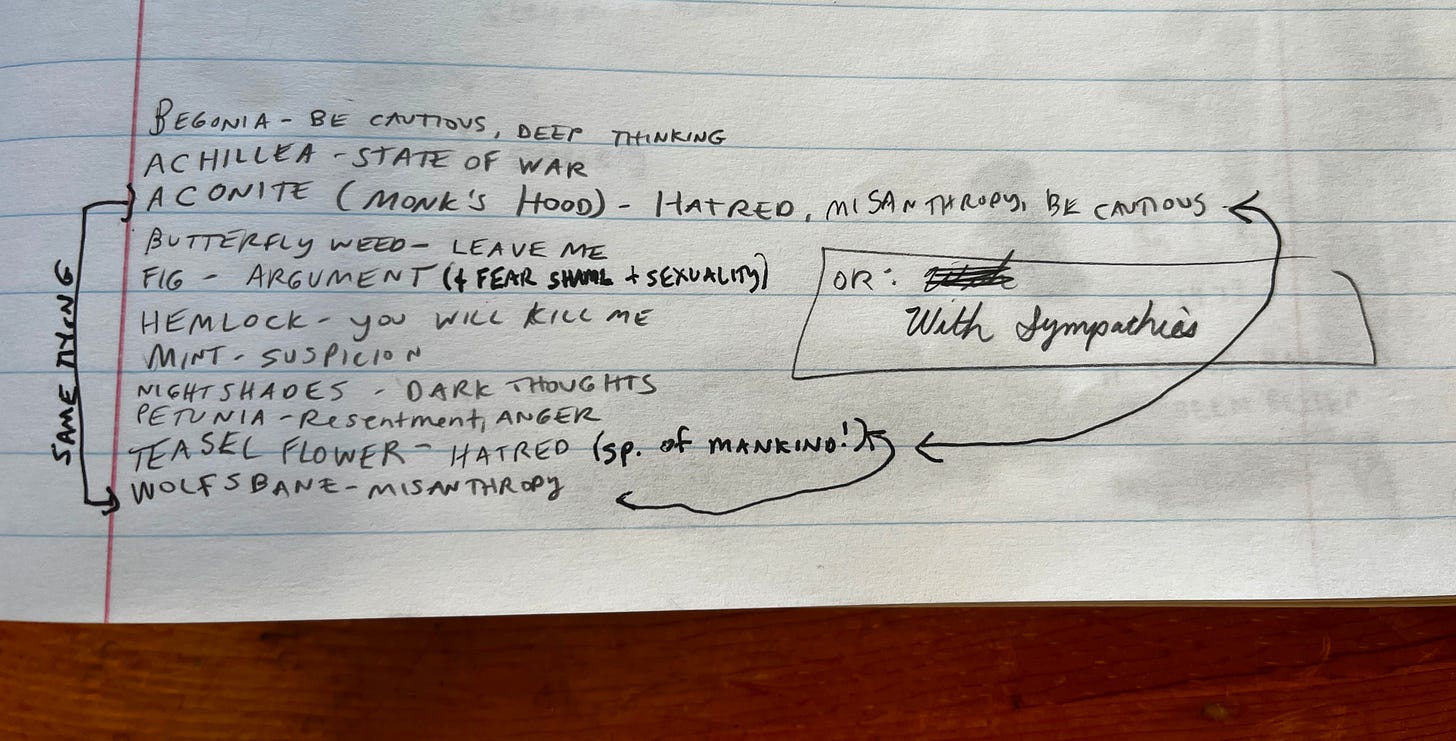 BEGONIA - BE CAUTIOUS, DEEP THINKING
ACHILLEA - STATE OF WAR
ACONITE (MONK'S HOOD) - HATRED, MISANTHROPY, BE CAUTIOUS
BUTTERFLY WEED - LEAVE ME
FIG - ARGUMENT (+ FEAR SHAME + SEXUALITY)
OR:
With Sympathies
HEMLOCK - YOU WILL KILL ME
MINT - SUSPICION
NIGHTSHADES - DARK THOUGHTS
PETUNIA - Resentment, ANGER
TEASEL FLOWER - HATRED (sp. of MANKIND!)
WOLFSBANE - MISANTHROPY
SAME THING